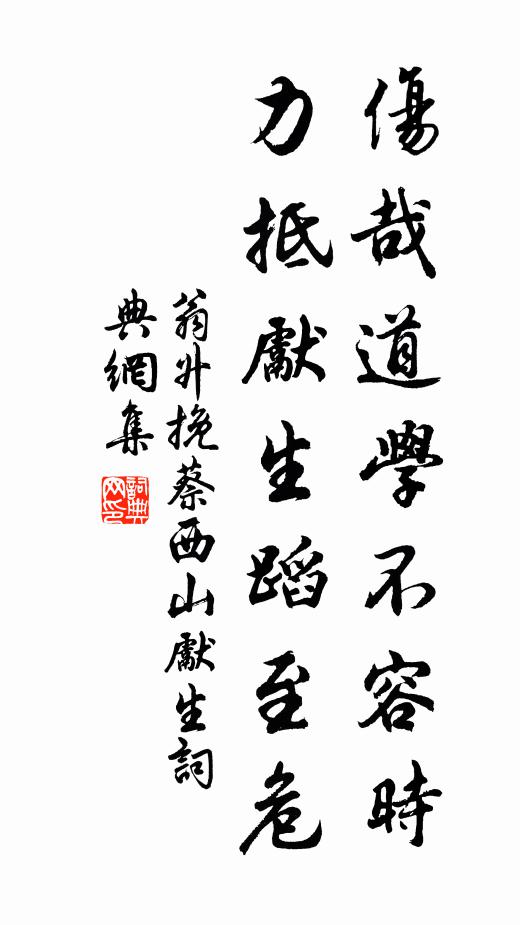 傷哉道學不容時
力抵獻生蹈至危
翁升挽蔡西山獻生詞
典網集
詞典网印